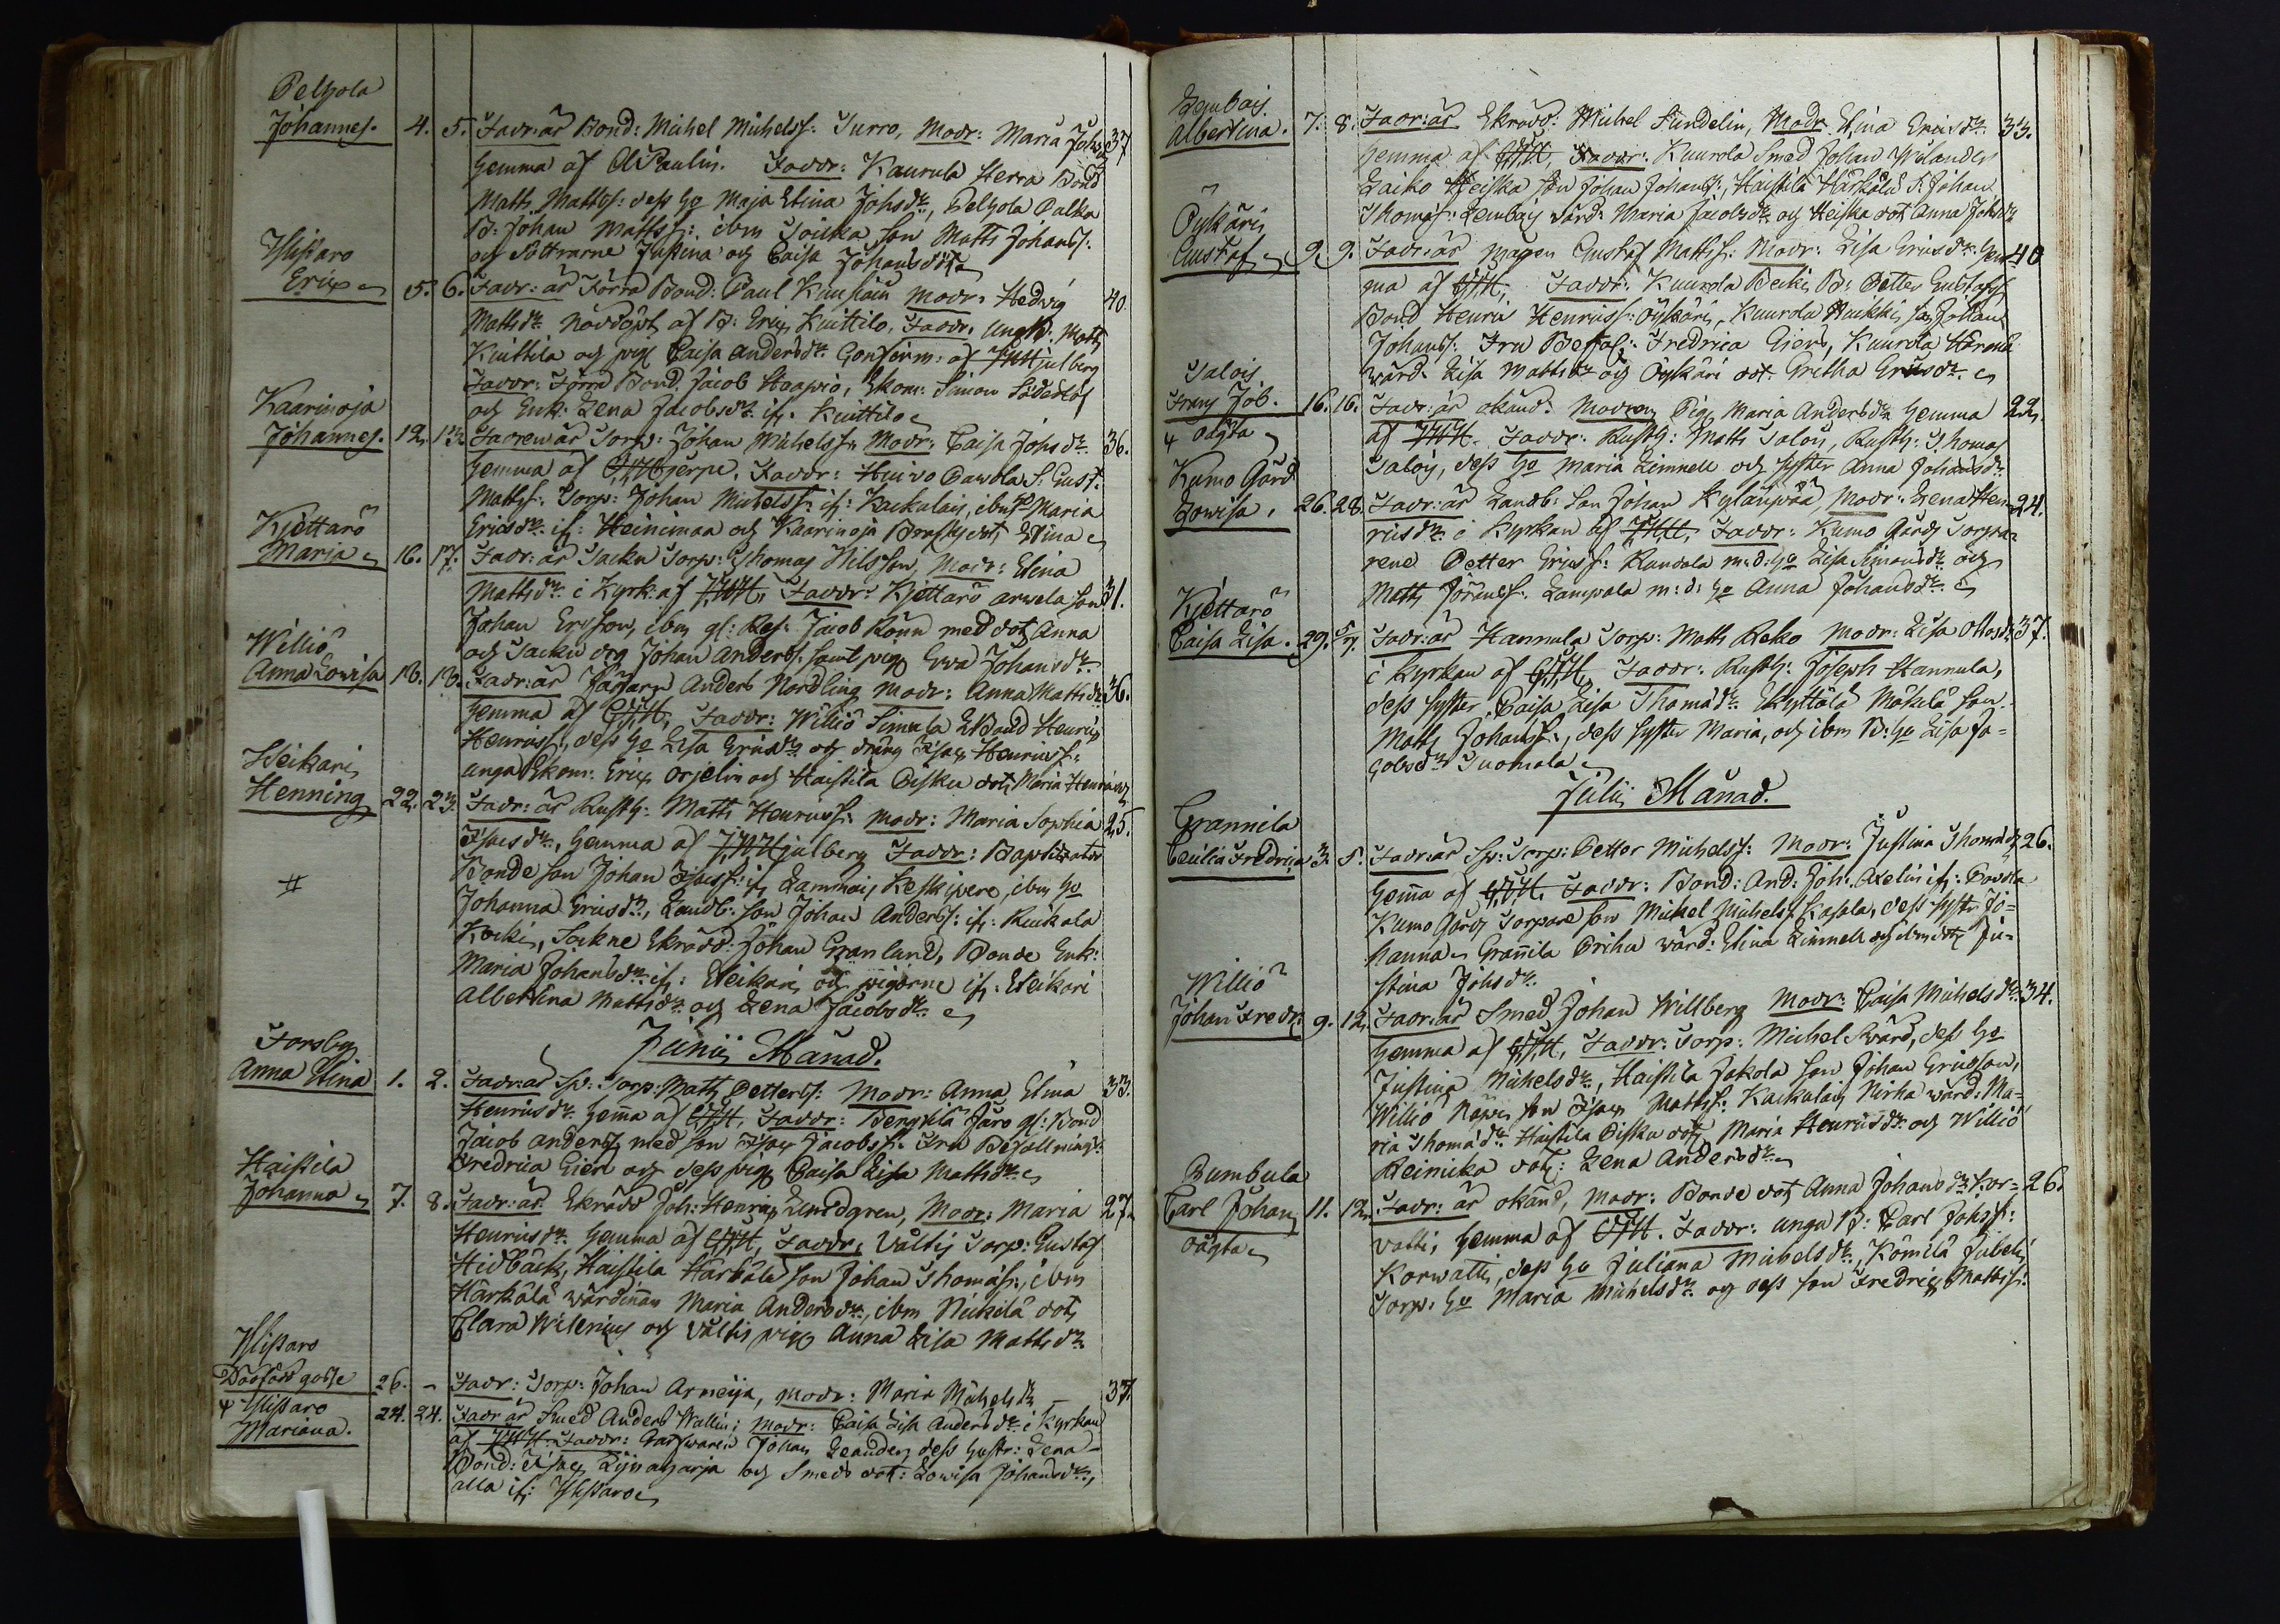 Pelhola
Johannes. 4. 5. Fadr: är Bond: Michel Michelss: Turro, Modr: Maria Johsdr 37
hemma af A Paulin. Faddr: Kaurula Herra Bond
Matts Mattss: dess ho Maja Stina Johsdr, Pelhola Palka
B: Johan Mattss: ibm son Matts Johanss:
och Justina och Caisa Johansdöt
Ylistaro
Eric 5. 6. Fadr: är Förra Bond: Paul modr: Hedvig 40.
Mattsdr nöddöpt af B: Eric Kuittilo, Faddr: ungk: Matts
Kuittila och pig Caisa Andersdr. Confirm: af Hjulberg
Faddr: Förra Bond. Jacob Haapio, Ekon: Simon Söderlöf
och Enk: Lena Jacobsdr if. Kuittilo
Kaarinoja
Johannes. 12. 13. Fadren är Torp: Johan Michelss: Modr: Caisa Johsdr. 36.
hemma af Hjerpe. Faddr: Huivo Pawola S: Gust.
Mattss: Torp: Johan Michelss: if: Kackulais, ibm ho Maria
Ericsdr if: Heinimaa och Kaarinoja dot, Stina
Kjettarö
Maria 16. 17. Fadr: är Torp: Thomas Nilsson, Modr: Stina
Mattsdr i Kyrk: af Faddr: Kjettarö arwela son 31.
Johan Ericson, ibm gl: Jacob Rönn med dot, Anna
och drg Johan Anderss: samt pig Ewa Johansdr
Williö
Anna Lowisa 18. 18. Fadr: är Anders Nordling modr: Anna Mattsdr 36.
hemma af Faddr: Williö Simula Bond Henric
Henricss:, dess ho Lisa Ericsdr och dräng Isac Henricss:
unga Ekon: Eric Orjelin och Haistila Pisku dot, Maria Henricsdr
Heikari
Henning 22. 23. Fadr: är Rusth: Matts Henricss: modr: Maria Sophia 25.
Isacsdr, hemma af Hjulberg Faddr: Baptizator
Bonde son Johan Isacss: if Lammais, Keskipere, ibm ho
Johanna Ericsdr, Landb: son Johan Anderss: if: Ruskala
Kocki, Sockne Skrädd: Johan Granlund, Bonde Enk:
Maria Johansdr if: Heikari och pigorne if: Heikari
Albertina Mattsdr och Lena Jacobsdr
Junii Månad.
Forsby
Anna Stina 1. 2. Fadr: är Torp: Matts Petterss: Modr: Anna Stina 33.
Henricsdr hemma af Faddr: Bengtilä Järo gl: Bond
Jacob Anderss med son Isac Jacobss: Fru Befallnings:
Fredrica Giers och dess pig Caisa Lisa Mattsdr
Haistila
Johanna 7. 8. Fadr: är Skrädd Joh: Henric Lundgren, Modr: Maria 27.
Henricsdr hemma af Faddr: Vältis Torp: Gustaf
Hidbäck, Haistila Härkälä son Johan Thomass:, ibm
Härkälä wärdinnan Maria Andersdr, ibm Nickilä dot,
Clara Wilenius och Vältis pig Anna Lisa Mattsdr
Ylistaro
Dödfödd gosse 26. – Fadr: Torp: Johan Arneija, modr: Maria Michelsdr – 37.
Ylistaro
Mariana. 24. 24. Fadr är Smed Anders Wallin; modr: Caisa Lisa Andersdr i Kyrkan
af Faddr: Garfwaren Johan Leander, dess hustr: Lena
Bond: Isac Lijnaharja och Smeds dot: Lowisa Johansdr,
alla if: Ylistaro
Lembois
Albertina. 7. 8. Fadr: är Skrädd: Michel Sundelin, Modr Stina Ericsdr 33.
hemma af Faddr: Kuurola Smed Johan Welander
Laiko Heiska son Johan Johanss:, Haistila Härkälä S: Johan
Thomass: Lembois wärd: Maria Jacobsdr och Heiska dot Anna Johsdr
Öykäri
Gustaf 9. 9. Fadr: är mågen Gustaf Mattss: Modr: Lisa Ericsdr hem= 40
ma af Faddr: Kuurola B: Petter Gustafs
Bond Henric Henricss: Öykäri, Kuurola son Johan
Johanss: Fru Befal: Fredrica Giers, Kuurola
wärd: Lisa Mattsdr och Öykäri dot. Gretha Ericsdr
Talois
Frans Job. 16. 16. Fadr: är okänd. Modren Pig Maria Andersdr hemma 22.
oägta af Faddr: Rusth: Matts Talois, Rusth: Thomas
Talois, dess ho Maria Limnell och syster Anna Johansdr
Kumo Gård
Lowisa. 26. 28. Fadr: är Landb: son Johan Kylänpää, Modr: Lena Hen= 24.
ricsdr i Kyrkan af Faddr: Kumo Gårds Torpa=
rene Petter Ericss: Randala m: d: ho Lisa Simonsdr och
Matts Jöranss: Lampala m: d: ho Anna Johansdr
Kjettarö
Caisa Lisa. 29. Fadr: är Hannula Torp: Matts Reko Modr: Lisa Ottosdr 37.
i Kyrkan af Faddr: Rusth: Joseph Hannula,
dess syster, Caisa Lisa Thomasdr Skyttälä Mäkilä son
Matts Johanss:, dess syster Maria, och ibm B: ho Lisa Ja=
cobsdr Tuomola
Julii Månad.
Grannila
Cecilia Fredrica 3. 5. Fadr: är Torp: Petter Michelss: Modr: Justina Thomædr 26.
hemma af Faddr: Bond: And: Joh: Axelin if: Pawola
Kumo Gårds Torpare son Michel Michelss Kasala, dess syster Jo=
hanna Grannila Prihu wärd: Stina Limnell och ibm dot Ju=
stina Johsdr
Williö
Johan Fredr: 9. 12. Fadr: är Smed Johan Willberg Modr: Caisa Michelsdr 34.
hemma af Faddr: Torp: Michel Swärd, dess ho
Justina Michelsdr, Haistila Jakola son Johan Ericsson,
Williö son Isac Mattss: Kackulais Nirha wärd: Ma=
ria Thomædr Haistila Pisku dot, Maria Henricsdr och Williö
Reinicka dot: Lena Andersdr
Bumbula
Carl Johan 11. 12. Fadr: är okänd, modr: Bonde dot, Anna Johansdr Kor= 26.
oägta watti, hemma af Faddr: unga B: Carl Johss:
Korwatti, dess ho Juliana Michelsdr, Kömilä Jubeli
Torp: ho Maria Michelsdr och dess son Fredric Mattss: